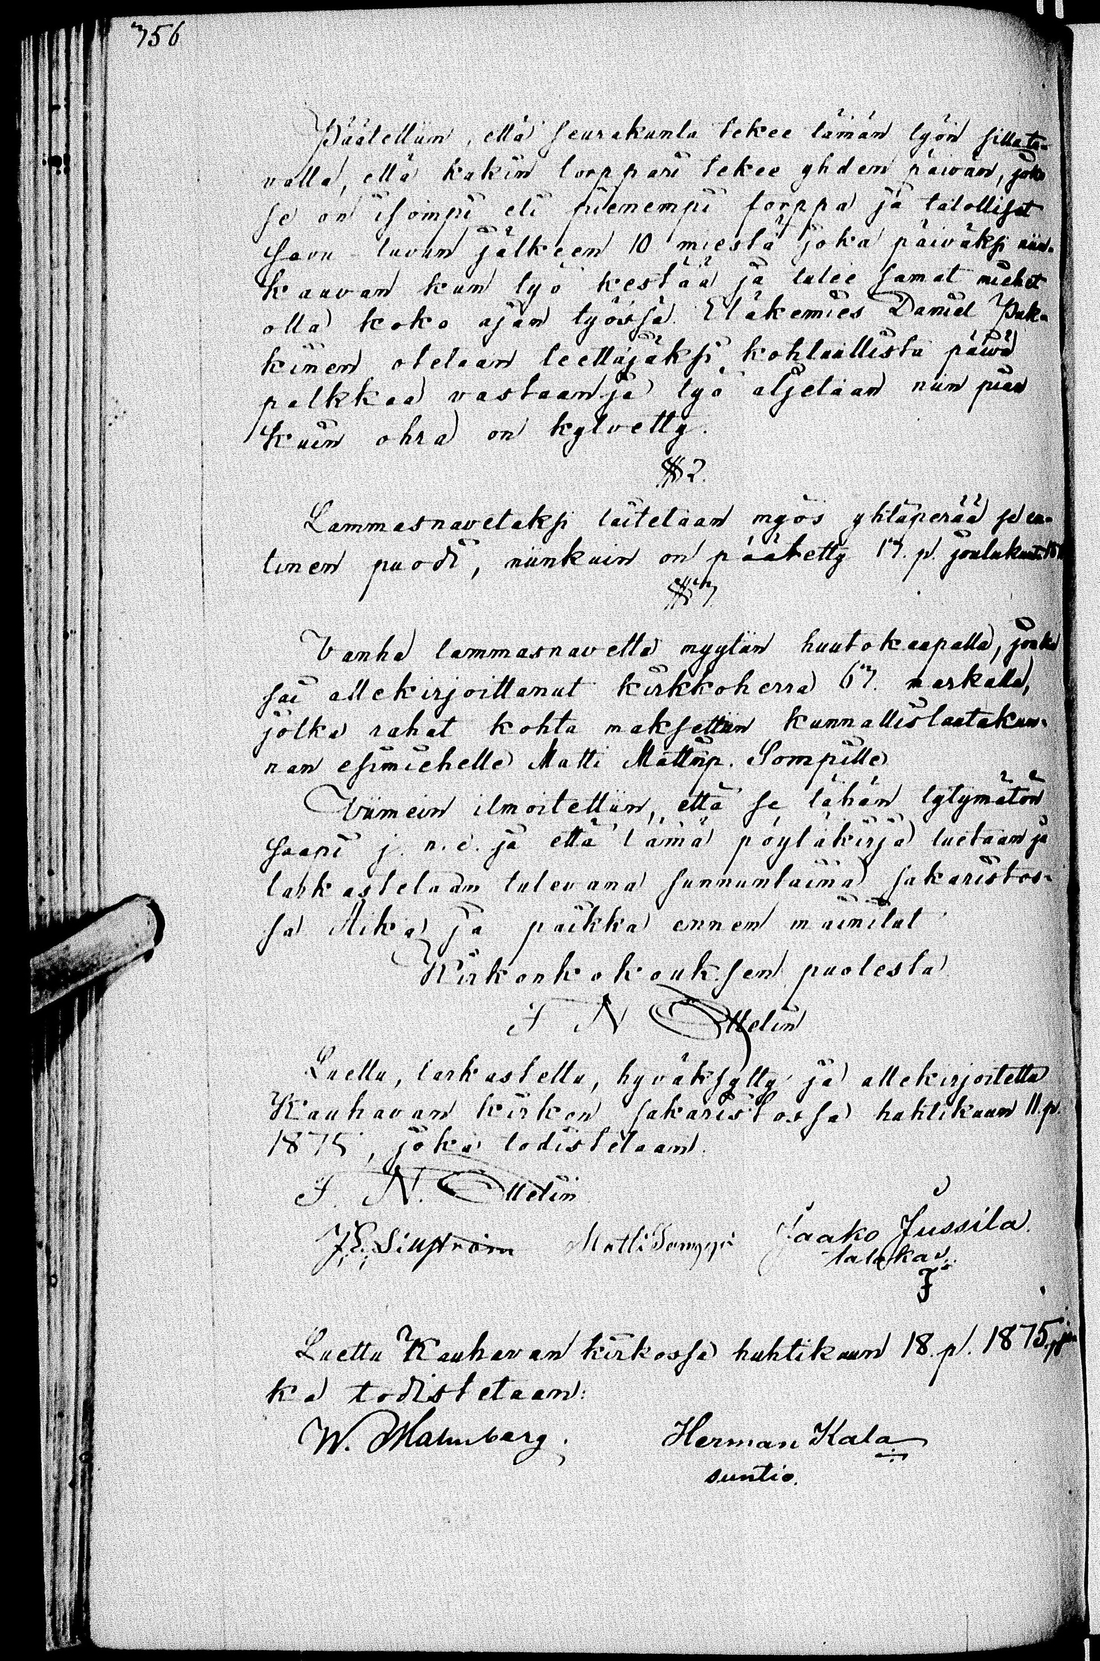 356
Päätettiin, että seurakunta tekee tämän työn silla ta-
valla, että kukin torppari tekee yhden päivän, joko
se on isompi eli pienempi torppa ja talolliset
savu luvun jälkeen 10 miestä joka päiväksi niin-
kauvan kun työ kestää ja tulee samat miehet
olla koko ajan työssä. Eläkemies Daniel Puk-
kinen otetaan teettäjäksi kohtuullista päivä
palkkaa vastaan ja työ aljetaan niin pian
kuin ohra on kylvetty.
§ 2.
Lammasnavetaksi laitetaan myös yhtäperää se en-
tinen puodi, niinkuin on päätetty 17. p. joulukuuta
§ 3.
Vanha lammasnavetta myytiin huutokaupalla, jonka
sai allekirjoittanut kirkkoherra 67. markalla,
jotka rahat kohta maksettiin kunnallislautakun-
nan esimiehelle Matti Mattiip. Sompille
Viimein ilmoitettiin, että se tähän tytymätön
saapi j. n. e. ja että tämä pöytäkirja luetaan ja
tarkastetaan tulevana sunnuntaina sakaristos-
sa Aika ja paikka ennen mainitut
Kirkonkokouksen puolesta
F N Ottelin
Luettu, tarkastettu, hyväksytty ja allekirjoitettu
Kauhavan kirkon sakaristossa huhtikuun 11. p.
1875, joka todistetaan.
F. N. Ottelin
Matti Somppi Jaako Jussila
Luettu Kauhavan kirkossa huhtikuun 18. p. 1875, jo-
ka todistetaan:
W. Malmberg. Herman Kala
suntio.